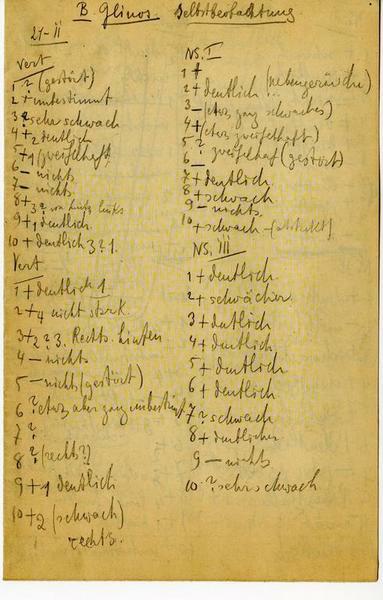 B Glinos. Selbstbeobachtung
21-II
Vert
1 ? (gestört)
2 + unbestimmt
3 ? sehr schwach
4 + 2 deutlich
5 + 1 (zweifelhaft)
6 — nichts
7 — nichts.
8 + 3 ? links
9 + 1 deutlich
10 + deutlich 3 ? 1.
Vert
1 + deutlich 1
2 + 4 nicht stark
3 + 2 ? 3. Rechts. hinten
4 — nichts
5 — nichts (gestört)
6 ? (etwas aber ganz unbestimmt
7 ?
8 ? (rechts?)
9 + 1 deutlich
10 + 2 (schwach)
rechts.
NS. I
1 +
2 + deutlich (nebengeräusche)
3 — (etwas ganz schwaches)
4 + (etwas zweifelhaft)
5 ? zweifelhaf (gestört)
6 —
7 + deutlich
8 + schwach
9 — nichts.
10 + schwach
NS. III
1 + deutlich
2 + schwächer
3 + deutlich
4 + deutlich
5 + deutlich
6 + deutlich
7 ? schwach
8 + deutlicher
9 — nichts
10 ? sehr schwach